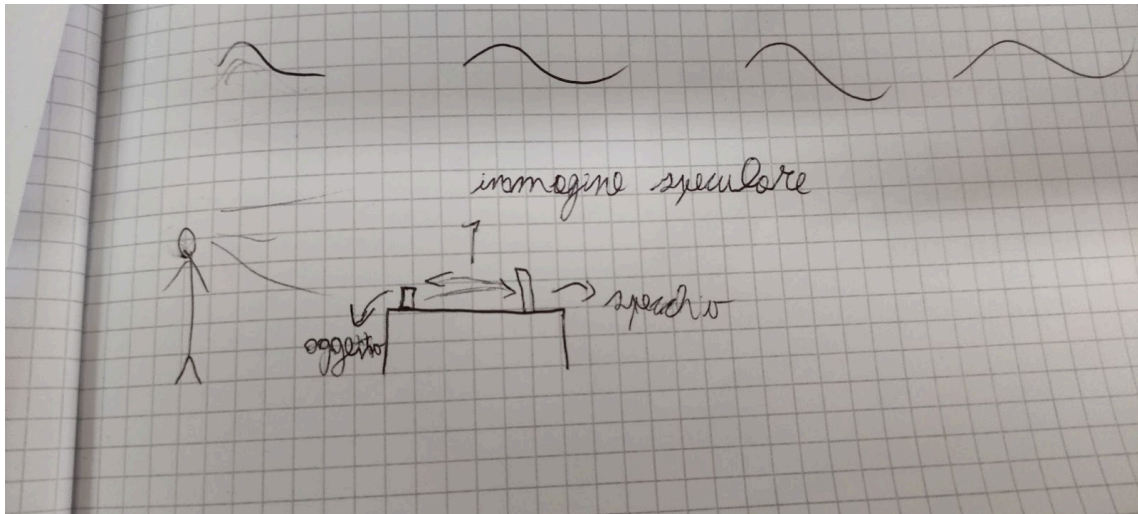 immagine speculare
specchio
oggetto